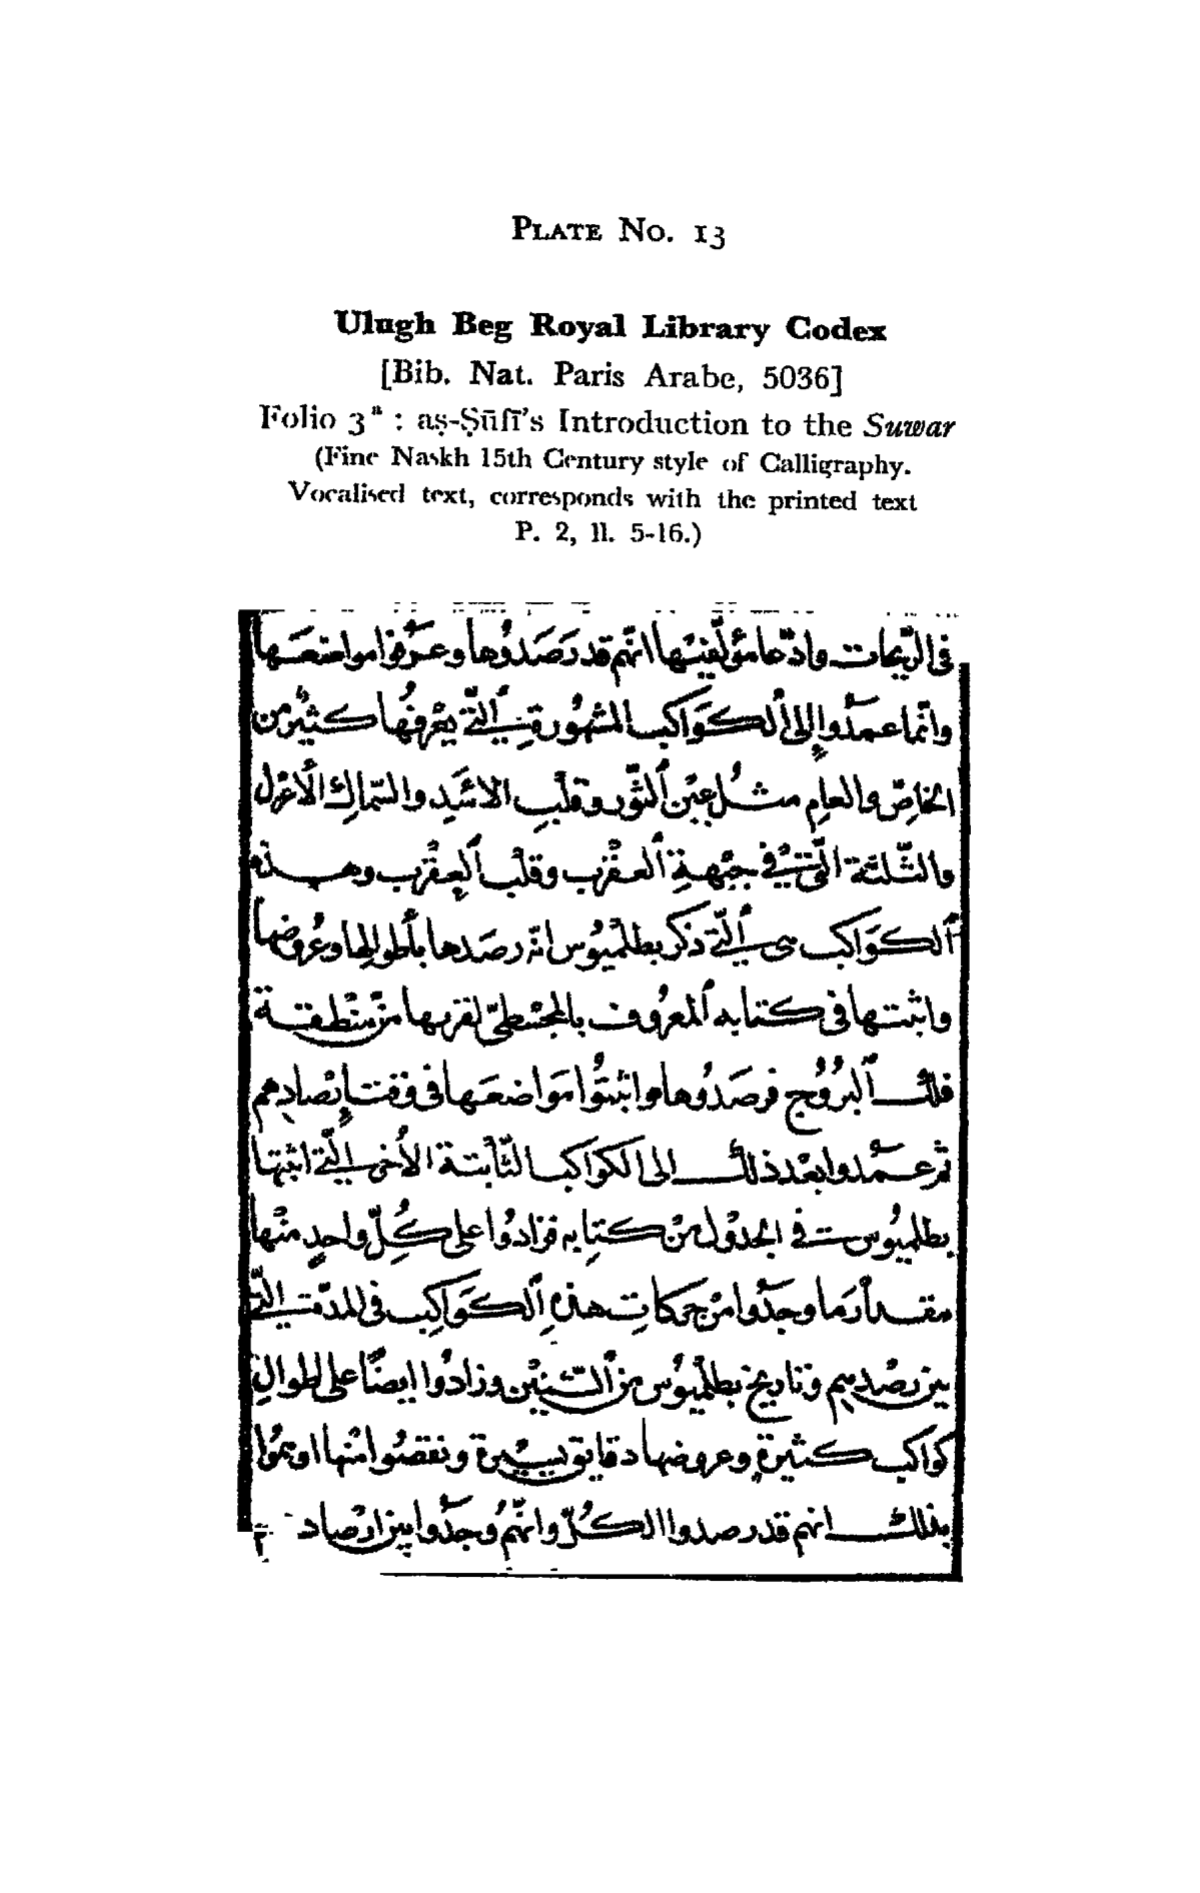 PLATE No. 13
Ulugh Beg Royal Library Codex
[Bib. Nat. Paris Arabe, 5036]
Folio 3ª : aṣ-Ṣūfī’s Introduction to the Suwar
(Fine Naskh 15th Century style of Calligraphy.
Vocalised text, corresponds with the printed text
P. 2, ll. 5-16.)
في الزيجات وادّعا مؤلّفيها انّهم قد رَصَدُوها وعَرَفوا مواضعَها
وانّما عمَدُوا إِلى الكَوَاكب المشهُورة الَّتي يعْرفُها كثيرٌ من
الخاصّ والعامِ مثلُ عيْن الثَّور وقلْبِ الاسَدِ والسّماكِ الأعزل
والثّلثة الَّتي في جبْهةِ العقْرب وقلْب العقْرب وهذه
الكَوَاكب هي الَّتي ذكر بطلميُوس انّه رصَدها بأطوالِها وعُروُضها
واثبتها في كتابه المعرُوف بالمجسْطيّ لقربها منْ منْطقة
فلك البرُوُج فرصَدُوها واثبتُوا مَواضعَها في وقت إِرْصادِهم
ثم عمَدوا بعْد ذلك الى الكواكب الثّابتة الأُخر الَّتي اثبتها
بطلميُوس في الجدْول منْ كتابِه فزادُوا على كُلّ واحدٍ منْها
مقدار مَا وجَدُوا منْ حركاتِ هذه الكَوَاكِب في المدّة الَّتي
بين رصْدِهم وتاريخ بطلميُوس من السّنيْن وزادُوا ايضًا على اطوالِ
كواكب كثيرةٍ وعروضها دقايق يسيْرة ونقصُوا منْها اوهَمُوا
بذلك انهم قد رصدوا الكُلّ وانّهُم وُجَدُوا بين ارْصاد